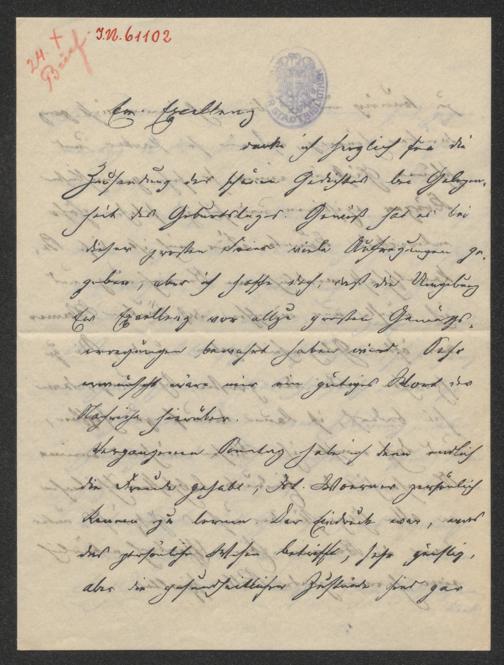 24. +
Brief
J.N. 61102
Ew. Exzellenz
danke ich herzlich für die
Zusendung des schönen Gedichtes bei Gelegen-
heit des Geburtstages. Gewiß hat es bei
dieser grossen Feier viele Aufregungen ge-
geben, aber ich hoffe doch, daß die Umgebung
Ew Exzellenz vor allzu grossen Gemüts-
erregungen bewahrt haben wird. Sehr
erwünscht wäre mir ein gütiges Wort der
Nachricht hierüber.
Vergangenen Sonntag habe ich denn endlich
die Freude gehabt, Frl. Woerner persönlich
kennen zu lernen. Der Eindruck war, was
das persönliche Wesen betrifft, sehr günstig,
aber die gesundheitlichen Zustände sind gar